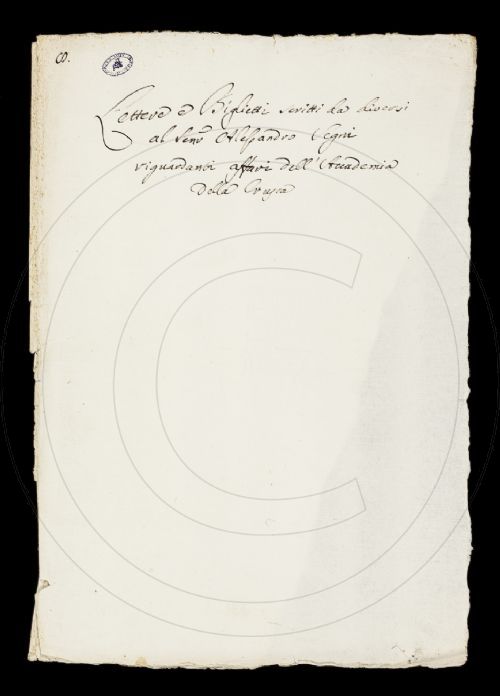 8.
Lettere e Biglietti scritti da diversi
al Senr Alessandro Segni
riguardanti affari dell'Accademia
Della Crusca